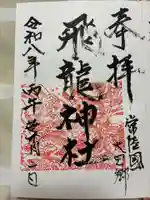 奉拝
常陸國
太田郷
飛龍神社
令和八年丙午
月一日